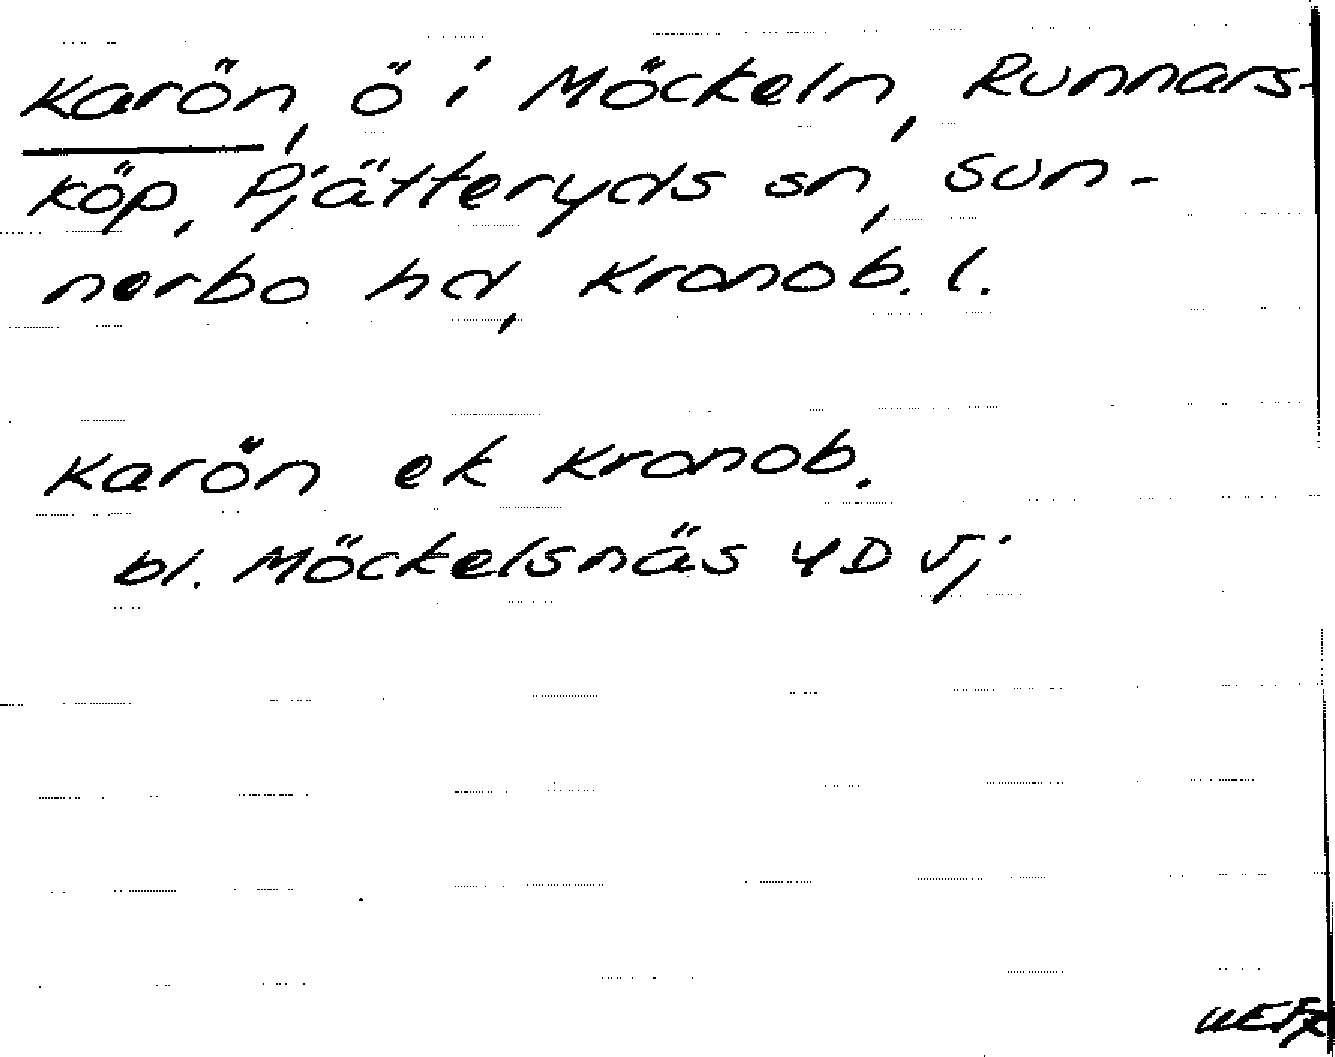 Karön, ö i Möckeln, Runnars-
köp, Pjätteryds sn, Sun-
nerbo hd, Kronob. l.
Karön ek Kronob.
bl. Möckelsnäs 4D Vj